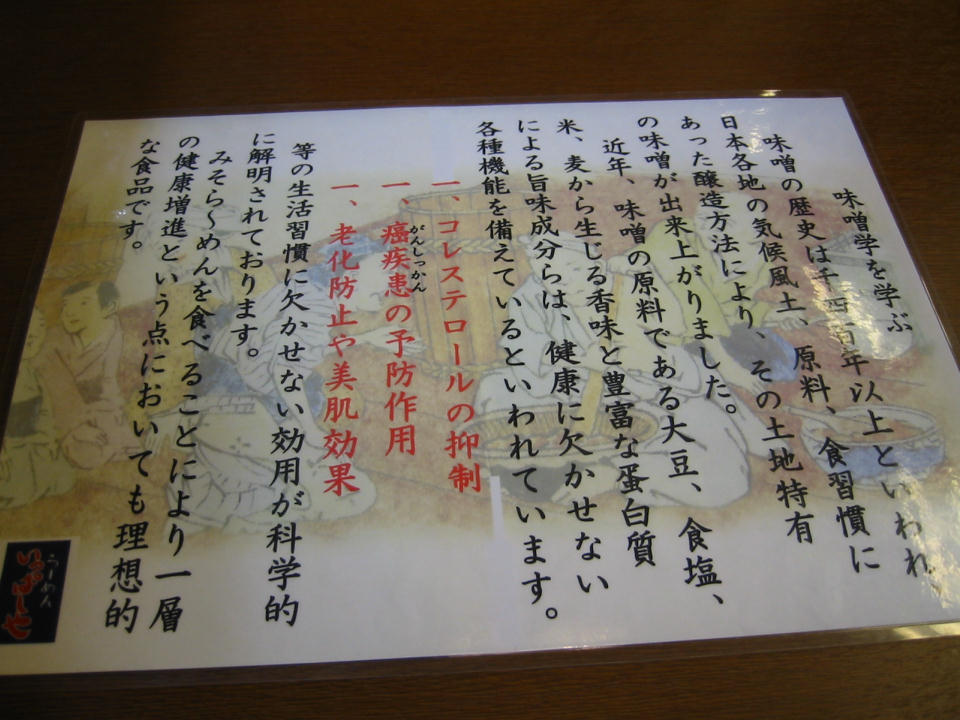 味噌学を学ぶ
味噌の歴史は千四百年以上といわれ
日本各地の気候風土、原料、食習慣に
あった醸造方法により、その土地特有
の味噌が出来上がりました。
近年、味噌の原料である大豆、食塩、
米、麦から生じる香味と豊富な蛋白質
による旨味成分らは、健康に欠かせない
各種機能を備えているといわれています。
一、コレステロールの抑制
一、癌疾患の予防作用
がんしっかん
一、老化防止や美肌効果
等の生活習慣に欠かせない効用が科学的
に解明されております。
みそら〜めんを食べることにより一層
の健康増進という点においても理想的
な食品です。
らーめん